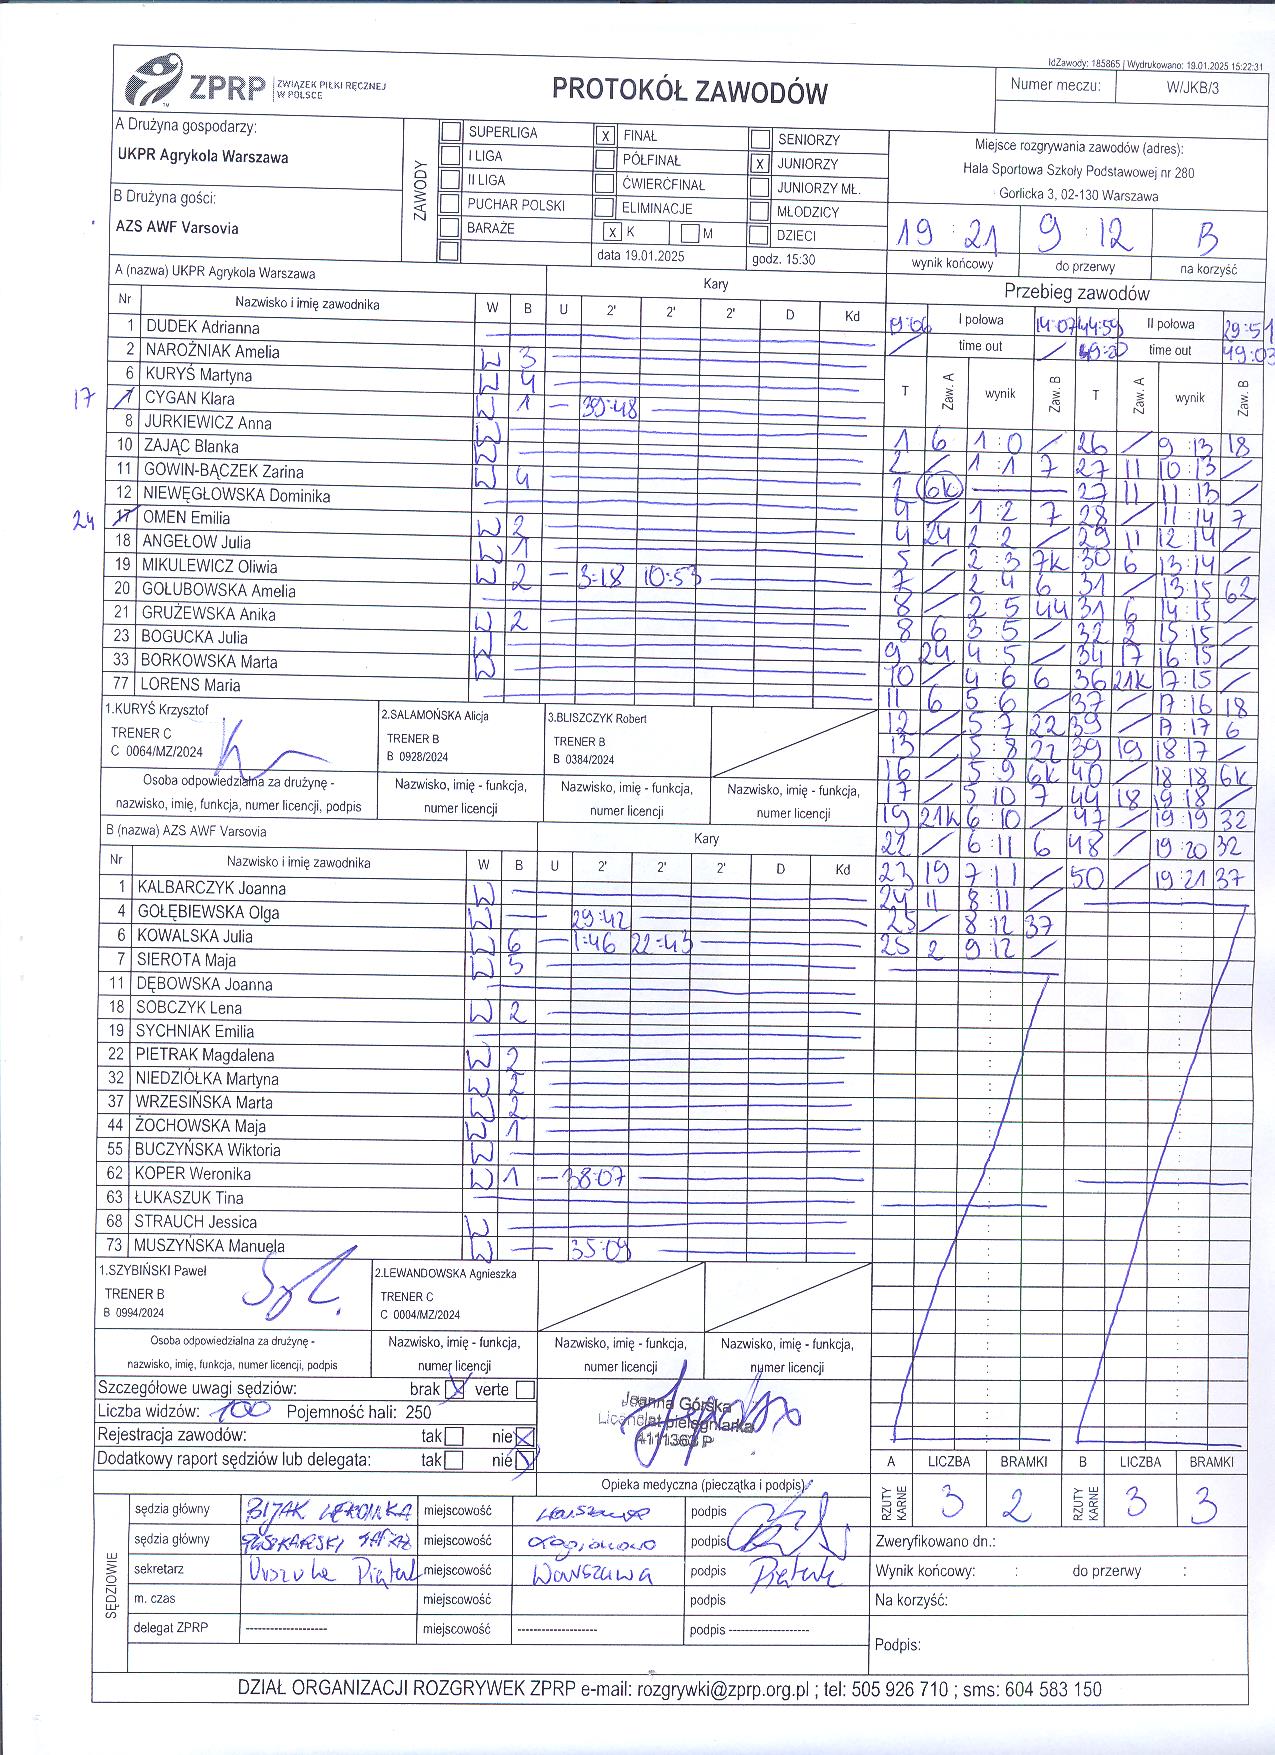 IdZawody: 185865 | Wydrukowano: 19.01.2025 15:22:31
ZPRP ZWIĄZEK PIŁKI RĘCZNEJ
W POLSCE
PROTOKÓŁ ZAWODÓW
Numer meczu: W/JKB/3
A Drużyna gospodarzy:
UKPR Agrykola Warszawa
B Drużyna gości:
AZS AWF Varsovia
ZAWODY
SUPERLIGA X FINAŁ SENIORZY
I LIGA PÓŁFINAŁ X JUNIORZY
II LIGA ĆWIERĆFINAŁ JUNIORZY MŁ.
PUCHAR POLSKI ELIMINACJE MŁODZICY
BARAŻE X K M DZIECI
data 19.01.2025 godz. 15:30
Miejsce rozgrywania zawodów (adres):
Hala Sportowa Szkoły Podstawowej nr 280
Gorlicka 3, 02-130 Warszawa
19 : 21 9 : 12 B
wynik końcowy do przerwy na korzyść
A (nazwa) UKPR Agrykola Warszawa Kary
Nr Nazwisko i imię zawodnika W B U 2' 2' 2' D Kd
1 DUDEK Adrianna
2 NAROŻNIAK Amelia W 3
6 KURYŚ Martyna W 4
17 CYGAN Klara W 1 39:48
8 JURKIEWICZ Anna W
10 ZAJĄC Blanka W
11 GOWIN-BĄCZEK Zarina W 4
12 NIEWĘGŁOWSKA Dominika
24 17 OMEN Emilia W 2
18 ANGEŁOW Julia W 1
19 MIKULEWICZ Oliwia W 2 3:18 10:53
20 GOŁUBOWSKA Amelia
21 GRUŻEWSKA Anika W 2
23 BOGUCKA Julia W
33 BORKOWSKA Marta W
77 LORENS Maria
1.KURYŚ Krzysztof
TRENER C
C 0064/MZ/2024
2.SALAMOŃSKA Alicja
TRENER B
B 0928/2024
3.BLISZCZYK Robert
TRENER B
B 0384/2024
Osoba odpowiedzialna za drużynę -
nazwisko, imię, funkcja, numer licencji, podpis
Nazwisko, imię - funkcja,
numer licencji
Nazwisko, imię - funkcja,
numer licencji
Nazwisko, imię - funkcja,
numer licencji
B (nazwa) AZS AWF Varsovia Kary
Nr Nazwisko i imię zawodnika W B U 2' 2' 2' D Kd
1 KALBARCZYK Joanna W
4 GOŁĘBIEWSKA Olga W 29:42
6 KOWALSKA Julia W 6 1:46 22:43
7 SIEROTA Maja W 5
11 DĘBOWSKA Joanna
18 SOBCZYK Lena W 2
19 SYCHNIAK Emilia
22 PIETRAK Magdalena W 2
32 NIEDZIÓŁKA Martyna W 2
37 WRZESIŃSKA Marta W 2
44 ŻOCHOWSKA Maja W 1
55 BUCZYŃSKA Wiktoria W
62 KOPER Weronika W 1 38:07
63 ŁUKASZUK Tina
68 STRAUCH Jessica W
73 MUSZYŃSKA Manuela W 35:09
1.SZYBIŃSKI Paweł
TRENER B
B 0994/2024
2.LEWANDOWSKA Agnieszka
TRENER C
C 0004/MZ/2024
Osoba odpowiedzialna za drużynę -
nazwisko, imię, funkcja, numer licencji, podpis
Nazwisko, imię - funkcja,
numer licencji
Nazwisko, imię - funkcja,
numer licencji
Nazwisko, imię - funkcja,
numer licencji
Przebieg zawodów
19:06 I połowa 14:07 44:59 II połowa 29:51
/ time out / time out 49:03
T Zaw. A wynik Zaw. B T Zaw. A wynik Zaw. B
1 6 1 : 0 / 26 / 9 : 13 18
2 / 1 : 1 7 27 11 10 : 13 /
2 6K 27 11 11 : 13 /
4 / 1 : 2 7 28 / 11 : 14 7
4 24 2 : 2 / 29 11 12 : 14 /
5 / 2 : 3 7K 30 6 13 : 14 /
7 / 2 : 4 6 31 / 13 : 15 62
8 / 2 : 5 44 31 6 14 : 15 /
8 6 3 : 5 / 32 2 15 : 15 /
9 24 4 : 5 / 34 17 16 : 15 /
10 / 4 : 6 6 36 21K 17 : 15 /
11 6 5 : 6 / 37 / 17 : 16 18
12 / 5 : 7 22 39 / 17 : 17 6
13 / 5 : 8 22 39 19 18 : 17 /
16 / 5 : 9 6K 40 / 18 : 18 6K
17 / 5 : 10 7 44 18 19 : 18 /
19 21K 6 : 10 / 47 / 19 : 19 32
22 / 6 : 11 6 48 / 19 : 20 32
23 19 7 : 11 / 50 / 19 : 21 37
24 11 8 : 11 /
25 / 8 : 12 37
25 2 9 : 12 /
Szczegółowe uwagi sędziów: brak X verte
Liczba widzów: 100 Pojemność hali: 250
Rejestracja zawodów: tak nie X
Dodatkowy raport sędziów lub delegata: tak nie X
Joanna Górska
Licencjat pielęgniarka
4111363 P
Opieka medyczna (pieczątka i podpis)
A LICZBA BRAMKI B LICZBA BRAMKI
RZUTY KARNE 3 2 RZUTY KARNE 3 3
SĘDZIOWIE
sędzia główny BIJAK WERONIKA miejscowość Warszawa podpis
sędzia główny miejscowość podpis
sekretarz Urszula Piątek miejscowość Warszawa podpis Piątek
m. czas miejscowość podpis
delegat ZPRP -------------------- miejscowość -------------------- podpis --------------------
Zweryfikowano dn.:
Wynik końcowy: : do przerwy :
Na korzyść:
Podpis:
DZIAŁ ORGANIZACJI ROZGRYWEK ZPRP e-mail: rozgrywki@zprp.org.pl ; tel: 505 926 710 ; sms: 604 583 150